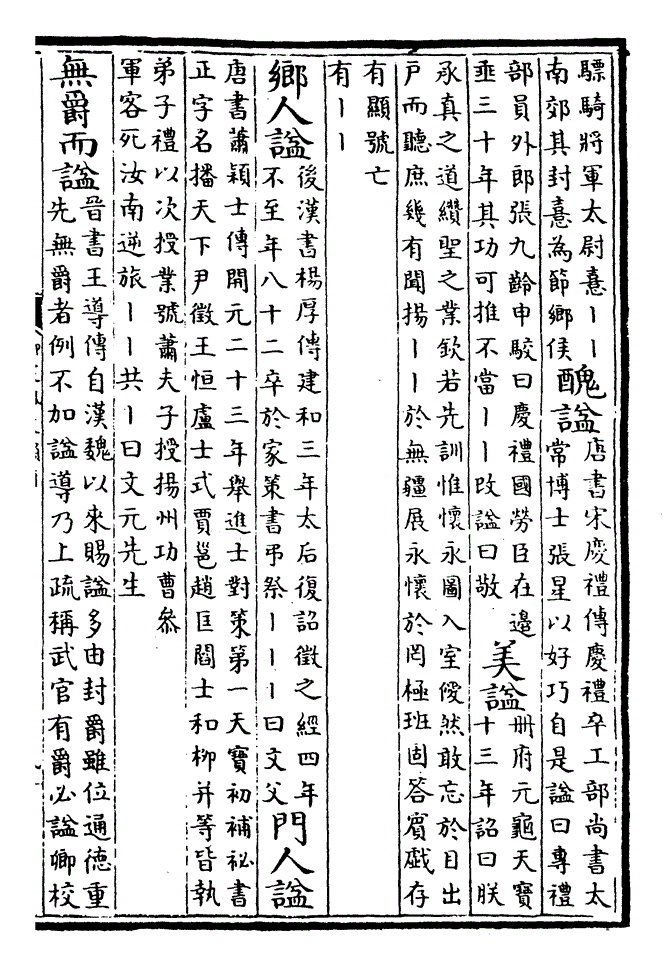 驃騎將軍太尉憙丨丨
南郊其封憙為節鄉侯
醜諡
唐書宋慶禮傳慶禮卒工部尚書太
常博士張星以好巧自是諡曰專禮
部員外郎張九齡申駮曰慶禮國勞臣在邊
垂三十年其功可推不當丨丨改諡曰敬
美諡
册府元龜天寶
十三年詔曰朕
承真之道纘聖之業欽若先訓惟懷永圖入室僾然敢忘於目出
戶而聽庶幾有聞揚丨丨於無疆展永懷於罔極班固答賓戲存
有顯號亡
有丨丨
鄉人諡
後漢書楊厚傳建和三年太后復詔徵之經四年
不至年八十二卒於家策書弔祭丨丨丨曰文父
門人諡
唐書蕭穎士傳開元二十三年舉進士對策第一天寶初補祕書
正字名播天下尹徵王恒盧士式賈邕趙匡閻士和柳并等皆執
弟子禮以次授業號蕭夫子授揚州功曹參
軍客死汝南逆旅丨丨共丨曰文元先生
無爵而諡
晉書王導傳自漢魏以來賜諡多由封爵雖位通德重
先無爵者例不加諡導乃上疏稱武官有爵必諡卿校